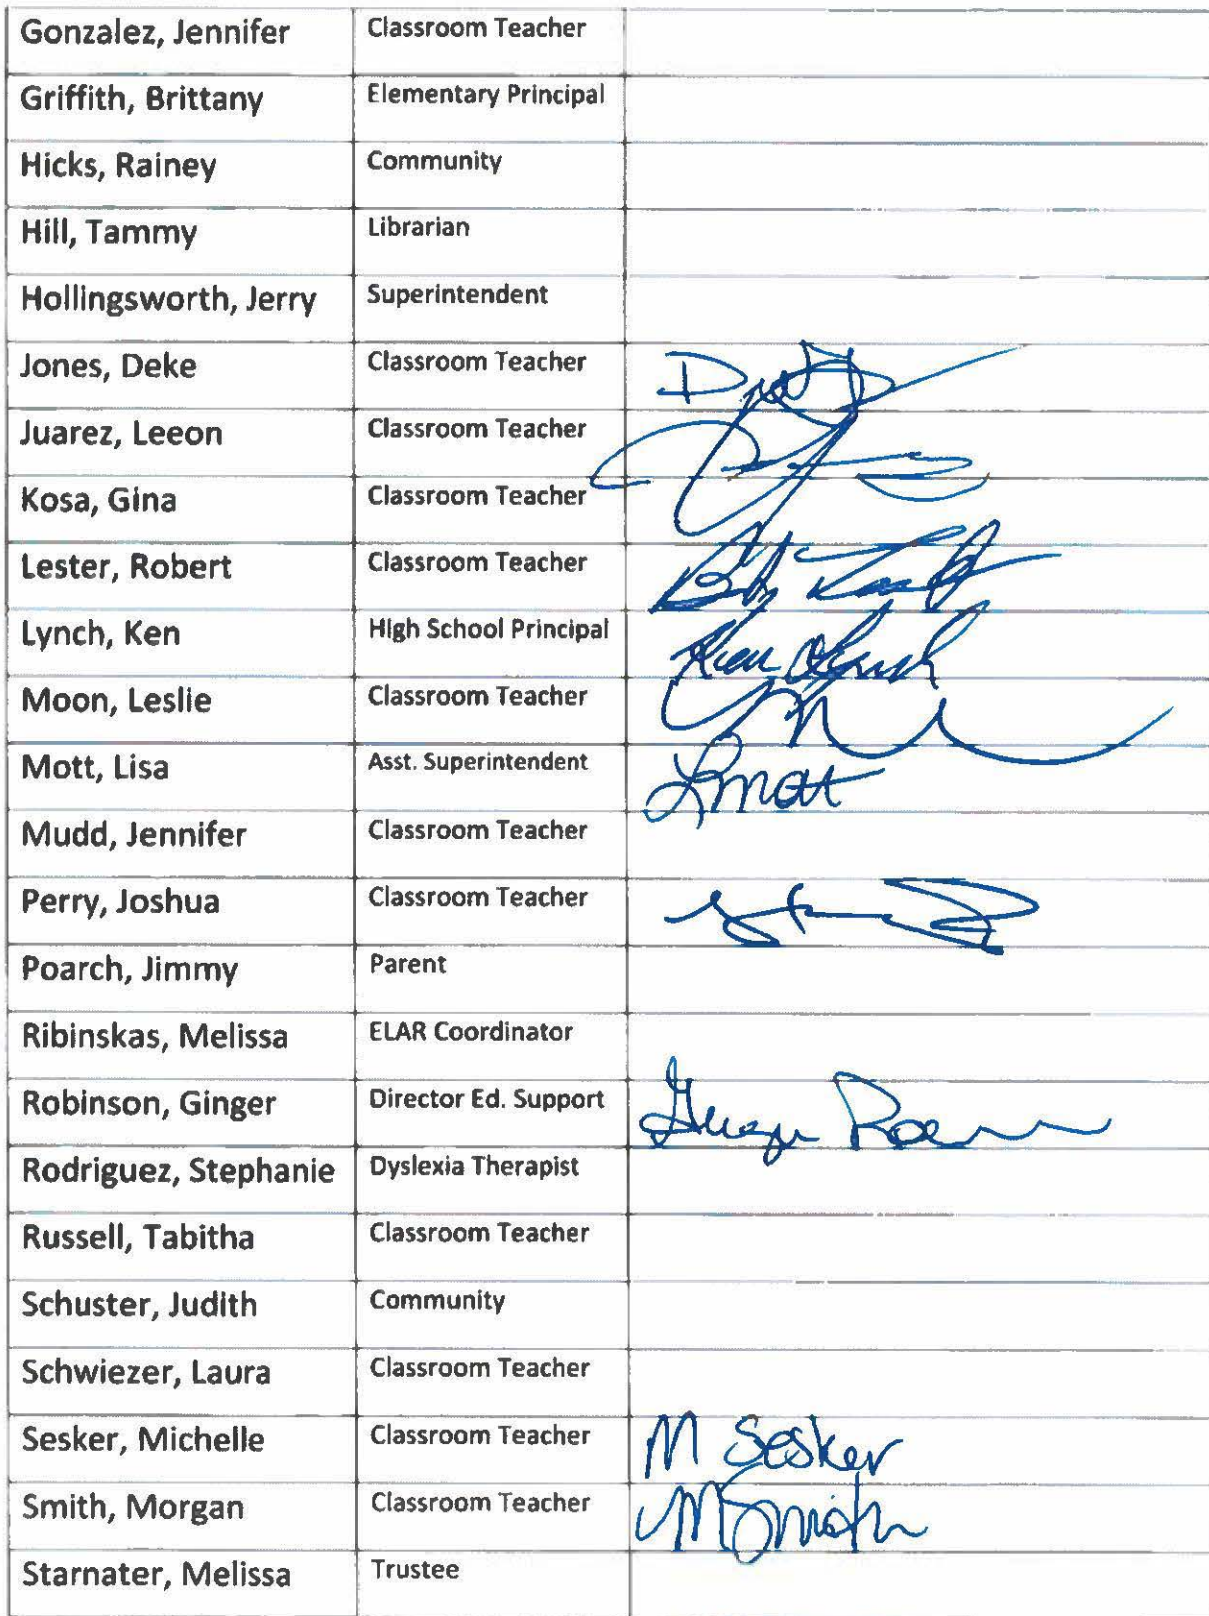 Gonzalez, Jennifer Classroom Teacher
Griffith, Brittany Elementary Principal
Hicks, Rainey Community
Hill, Tammy Librarian
Hollingsworth, Jerry Superintendent
Jones, Deke Classroom Teacher
Juarez, Leeon Classroom Teacher
Kosa, Gina Classroom Teacher
Lester, Robert Classroom Teacher
Lynch, Ken High School Principal Ken Lynch
Moon, Leslie Classroom Teacher
Mott, Lisa Asst. Superintendent LMott
Mudd, Jennifer Classroom Teacher
Perry, Joshua Classroom Teacher
Poarch, Jimmy Parent
Ribinskas, Melissa ELAR Coordinator
Robinson, Ginger Director Ed. Support
Rodriguez, Stephanie Dyslexia Therapist
Russell, Tabitha Classroom Teacher
Schuster, Judith Community
Schwiezer, Laura Classroom Teacher
Sesker, Michelle Classroom Teacher M Sesker
Smith, Morgan Classroom Teacher MSmith
Starnater, Melissa Trustee